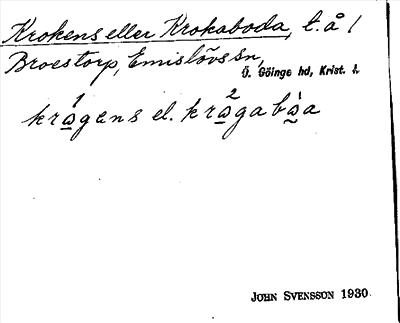 Krokens eller Krokaboda, t. å /
Broestorp, Emislövs sn,
Ö. Göinge hd, Krist. l.
krågens el. krågabåa
JOHN SVENSSON 1930.